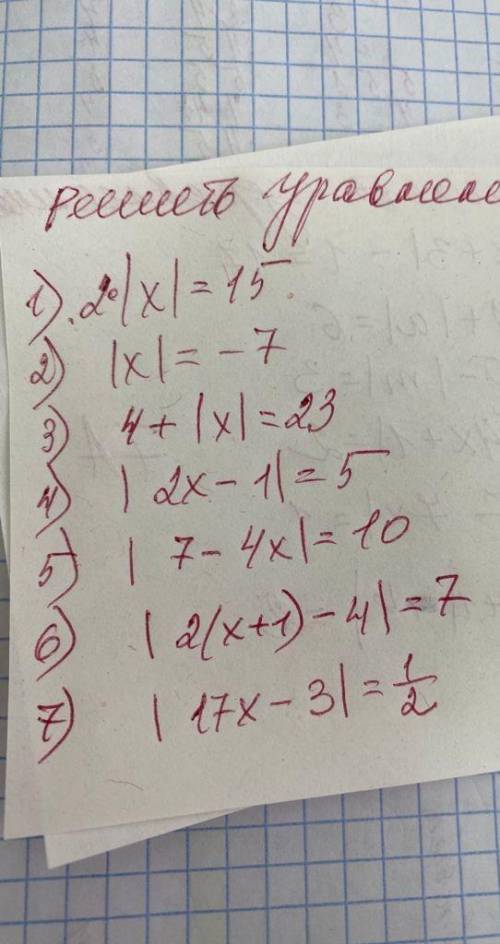 Решить уравнение
1). 2•|x| = 15.
2) |x| = - 7
3) 4 + |x| = 23
4) | 2x - 1| = 5
5) | 7 - 4x| = 10
6) | 2(x+1) - 4| = 7
7) | 17x - 3| = 1/2